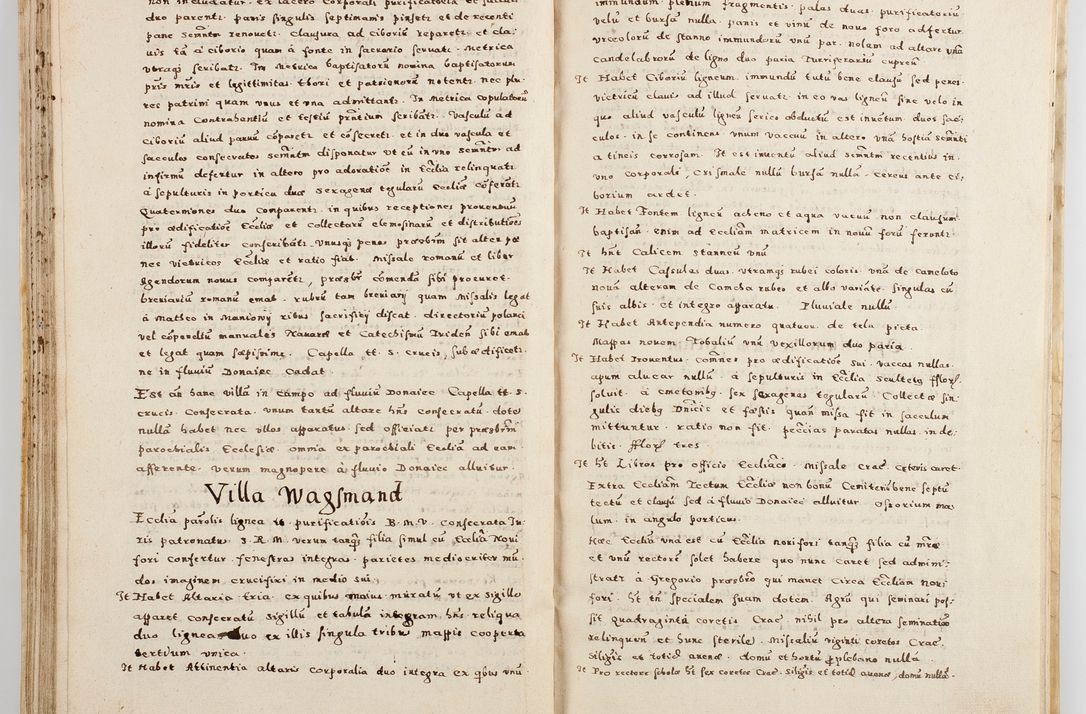 duo parentr. paris singulis septimanis pinsetr et de recenti
pane semntm renovetr. Clausura ad ciboriũ reparetr et cla-
uis tã à ciborio quam à fonte in sacrario seruatr. Metrica
utraqз scribatr. In Metrica baptisatorũ nomina baptisatorum
pris mris et legittimitas thori et patrinorũ notentr. nec plu
res patrini quam unus et una admittantr. In Metrica copulatorũ
nomina Contrahentiũ et testiũ prñtium scribãtr. Vasculũ ad
Ciboriũ aliud paruũ cõparetr et cõsecretr. et in duo vascula et
sacculos consecratos semñtm disponatur ut cũ in uno semñtur ad
infirmũ defertur in altero pro adoratiõe in Ecclia relinquatr.
à sepulturis in porticu duæ sexagenæ tegularũ Eccliæ cõferãtr
Quaterniones duo Comparentr. in quibus receptiones prouentuũ
pro ædificatiõe Eccliæ et Collectarũ elemosinarũ et distributiões
illarũ fideliter conscribãtr. unusqз penes præsbrm sit alter pe
nes vietricos Eccliæ et ratio fiat. Missale romanũ et liber
Agendorum nouus comparetr, præsbr cõmendã sibi procuret.
breuiarium romanũ emat. rubrũ tam breuiarij quam Missalis legat
à Mattheo in Maniowy ritus sacrificij discat. directoriũ polonici
vel cõpendiũ manualis Nauaræ et Catechismũ Tridenti sibi emat
et legat quam sæpissime. Capella tt. S. Crucis, sub ædificetr.
ne in fluuiũ Donaiec Cadat.
Est añ hanc villã in Campo ad fluuiũ Donaiec Capella tt. s.
crucis. Consecrata. unum tantũ altare hñs consecratũ. dotẽ
nullã habet nec ullos apparatus. sed officiatr. per præsbrm
parochialis Ecclesiæ. omnia ex parochiali Ecclia ad eam
afferente. verum magnopere à fluuio Donaiec alluitur.
Villa Wagsmand
Ecclia parolis lignea tt. purificatiõis B. M. V. Consecrata Ju-
ris patronatus. S. R. M. verum tanqз filia simul cũ Ecclia Noui
fori confertur. fenestras integras. parietes mediocriter mũ-
dos imaginem crucifixi in medio sui.
It Habet Altaria tria. ex quibus maius muratũ ut ex sigillo
apparet consecratũ sigillũ et tabulã integram hñs reliqua
duo lignea duo ex illis singula tribus mappis cooperta
tertium unica.
It Habet Attinentia altaris Corporalia duo integra ex qbus unũ
immundum plenum fragmentis. palas duas. purificatoriũ
velũ et bursã nullã. panis et vinũ de nouo foro adfertur.
Vrceolorũ de stanno immundorũ unũ par. nolam ad altare unã
Candelabrorũ de ligno duo paria Turriferariũ cupreũ.
It Habet Ciboriũ ligneum immundũ tutũ bene clausũ sed penes
victricũ clauis ad illud seruatr. in eo vas ligneũ sine velo in
quo aliud vasculũ ligneũ serico abductũ est inuẽtum duos sac-
culos in se continens unum vacuũ in altero unã hostiã semñti
à tineis corrosam. It est inuentũ aliud semñtm recentius in
uno corporali, crismale nullũ bursã nullã. Cereus ante ci-
borium ardet.
It Habet Fontem ligneũ acheno et aqua vacuũ non clausum
baptisañ. enim ad Eccliam matricem in nouũ forũ ferontr.
It hñt Calicem stanneũ unũ
It Habet Casulas duas utramqз rubei coloris unã de cameloto
nouã alteram de Camcha rubeo et albo variãte. singulas cũ
suis albis et integro apparatu. Pluuiale nullũ.
It Habet Antependia numero quatuor de tela picta.
Mappas nouem Stobaliũ unũ vexillorum duo paria.
It Habet Prouentus. comñes pro ædificatiõe sui. vaccas nullas.
apum aluear nullũ. à sepulturis in Ecclia scultetg fflor.
soluit à cmetonibg sex sexagenas tegularũ. Collectæ sin-
gulis diebg Dnicis et fæstis quañ missa fit in sacculum
mittuntur. ratio non fit. pecuñias paratas nullas in de-
bitis. fflor tres.
It ht Libros pro officio Eccliaco. Missale Crac. Ceteris caret.
Extra Eccliam Tectum Eccliæ non bonũ Cemiteriũ bene septũ
tectũ et clausũ sed à fluuio Donaiec alluitur. Ossorium ma-
lum. in angulo porticus.
Hæc Ecclia una est cũ Ecclia noui fori tanqз filia cũ mre
et unũ rectorẽ solet habere quo nunc caret sed admini-
stratr à Gregorio præsbro qui manet circa Eccliam noui
fori. ht tñ specialem suam dotem. Agrũ qui seminari pos-
sit quadraginta coretis Crac. nihil pro altera seminatiõe
relinquens et hunc sterilẽ. Missaliũ viginti coretos Crac.
siliginis et totid. auenæ. domũ et hortũ p plebano nullũ.
It Pro rectore scholæ ht sex coretos Crac. siliginis et totid. auenæ, domũ nullã.